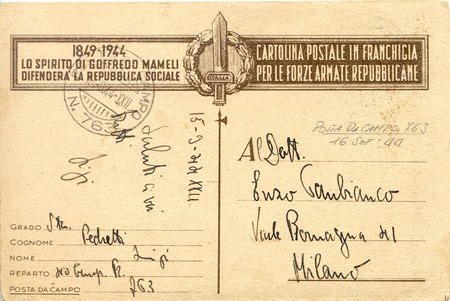 1849-1944
LO SPIRITO DI GOFFREDO MAMELI
DIFENDERÀ LA REPUBBLICA SOCIALE
ITALIA
CARTOLINA POSTALE IN FRANCHIGIA
PER LE FORZE ARMATE REPUBBLICANE
N. 763
POSTA DA CAMPO 763
15-9-44 XXII
Saluti a voi
tutti
Luigi
Al Dott.
Enzo Panbianco
Viale Romagna 41
Milano
GRADO
COGNOME Pedretti
NOME Luigi
REPARTO
POSTA DA CAMPO 763